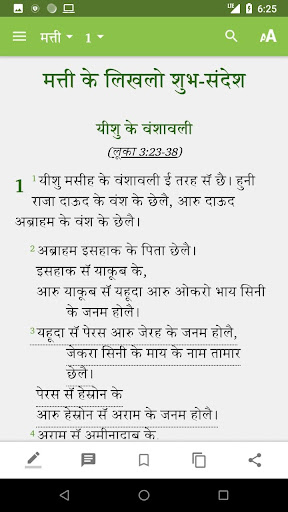 LTE 6:25
मत्ती 1 AA
मत्ती के लिखलो शुभ-संदेश
यीशु के वंशावली
(लूका 3:23-38)
1 ¹यीशु मसीह के वंशावली ई तरह सॅ छै। हुनी
राजा दाऊद के वंश के छेलै, आरु दाऊद
अब्राहम के वंश के छेलै।
² अब्राहम इसहाक के पिता छेलै।
इसहाक सॅ याकूब के,
आरु याकूब सॅ यहूदा आरु ओकरो भाय सिनी
के जनम होलै।
³ यहूदा सॅ पेरस आरु जेरह के जनम होलै,
जेकरा सिनी के माय के नाम तामार
छेलै।
पेरस सॅ हेस्रोन के
आरु हेस्रोन सॅ अराम के जनम होलै।
⁴ अराम सॅ अमीनादाब के,